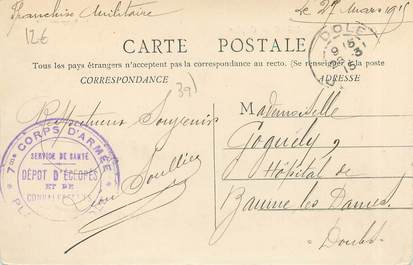 Franchise Militaire
Le 27 Mars 1915
12€
DOLE
CARTE POSTALE
Tous les pays étrangers n'acceptent pas la correspondance au recto. (Se renseigner à la poste)
CORRESPONDANCE
ADRESSE
39)
Respectueux Souvenirs
Léon
7me CORPS D'ARMÉE
SERVICE DE SANTÉ
DÉPOT D'ÉCLOPÉS
ET DE
CONVALESCENTS
Mademoiselle
Hôpital de
Baume les Dames
Doubs